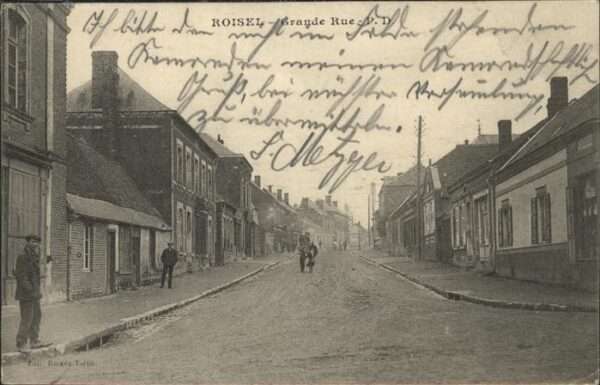 ROISEL - Grande Rue. P. D.
Ich bitte den mit im Felde stehenden
Kameraden meinen Kameradschaftl.
Gruß, bei nächster Versamlung,
zu übermitteln.
S. Metzger